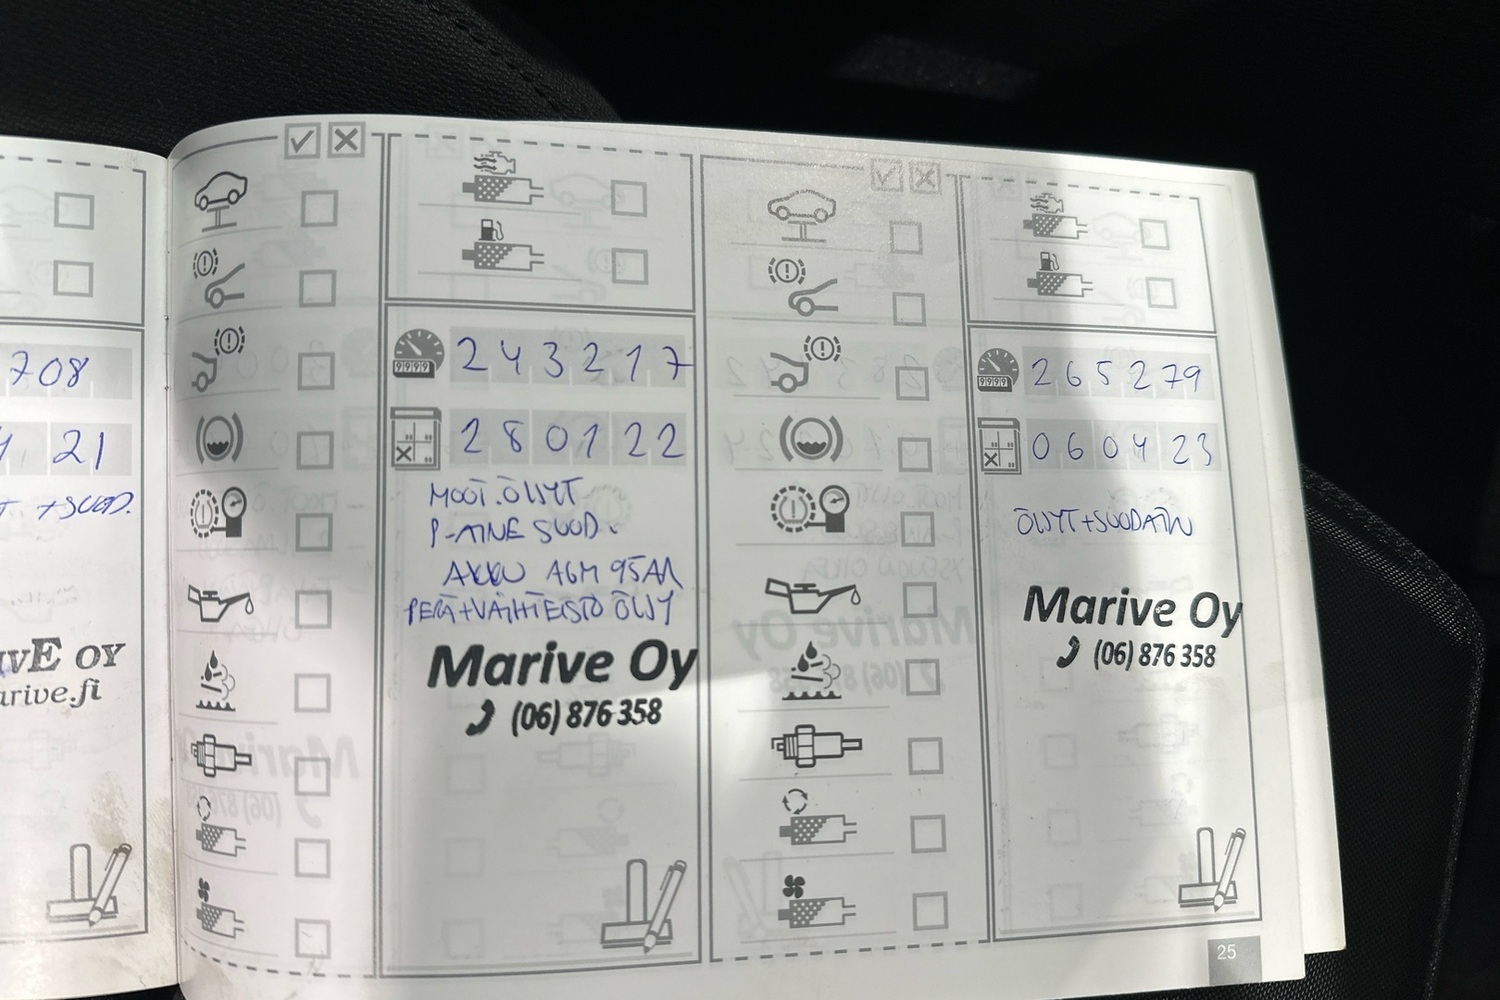 708
21
+SUOD.
arive.fi
243217
280122
MOOT.ÖLJYT
P-AINE SUOD.
AKKU AGM 95AH
PERÄ+VAIHTEISTO ÖLJY
Marive Oy
(06) 876 358
265279
060423
ÖLJYT+SUODATIN
Marive Oy
(06) 876 358
25